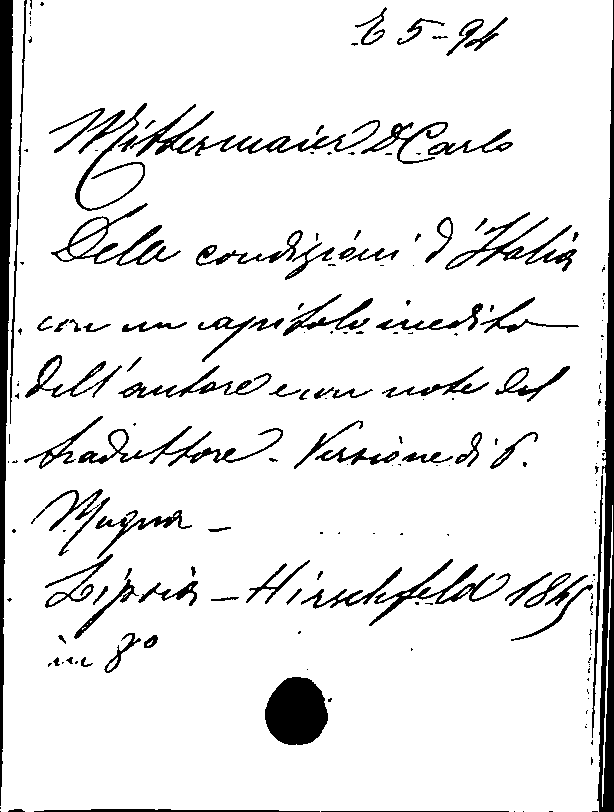 E 5-94
Mittermaier D. Carlo
Delle condizioni d'Italia
con un capitolo inedito
dell'autore e con note del
traduttore - Versione di P.
Mugna -
Lipsia - Hirschfeld 1845
in 8º